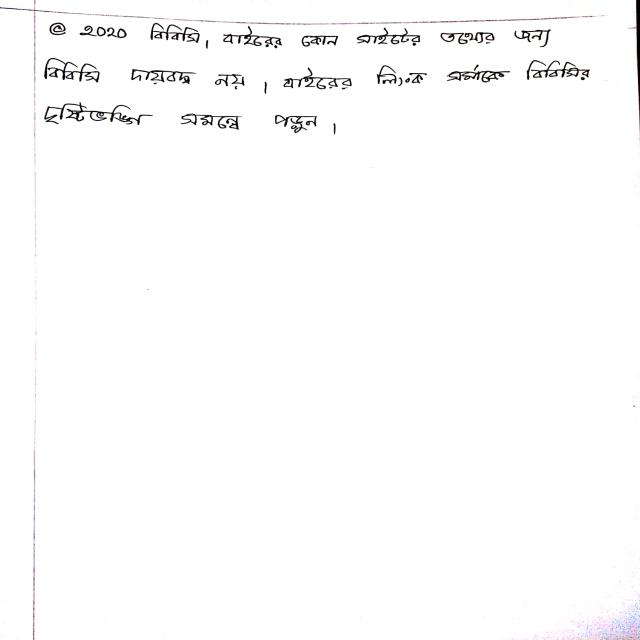 © 2020 বিবিসি। বাইরের কোন সাইটের তথ্যের জন্য
বিবিসি দায়বদ্ধ নয়। বাইরের লিংক সর্ম্পকে বিবিসির
দৃষ্টিভঙ্গি সম্বন্ধে পড়ুন।